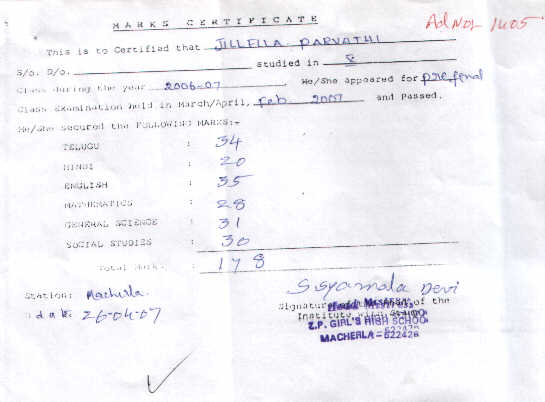 MARKS CERTIFICATE
Ad No. 1405
This is to Certified that JILLELLA PARVATHI
S/o. D/o. studied in 8
Class during the year 2006-07 He/She appeared for prefinal
Class Examination held in March/April, Feb 2007 and Passed.
He/She secured the FOLLOWING MARKS:-
TELUGU : 34
HINDI : 20
ENGLISH : 35
MATHEMATICS : 28
GENERAL SCIENCE : 31
SOCIAL STUDIES : 30
Total Mark. : 178
S. Syamala Devi
Station: Macherla.
Signature of the
Institute with
Head Mistress
Z.P. GIRL'S HIGH SCHOO
MACHERLA - 522426
date 26-04-07